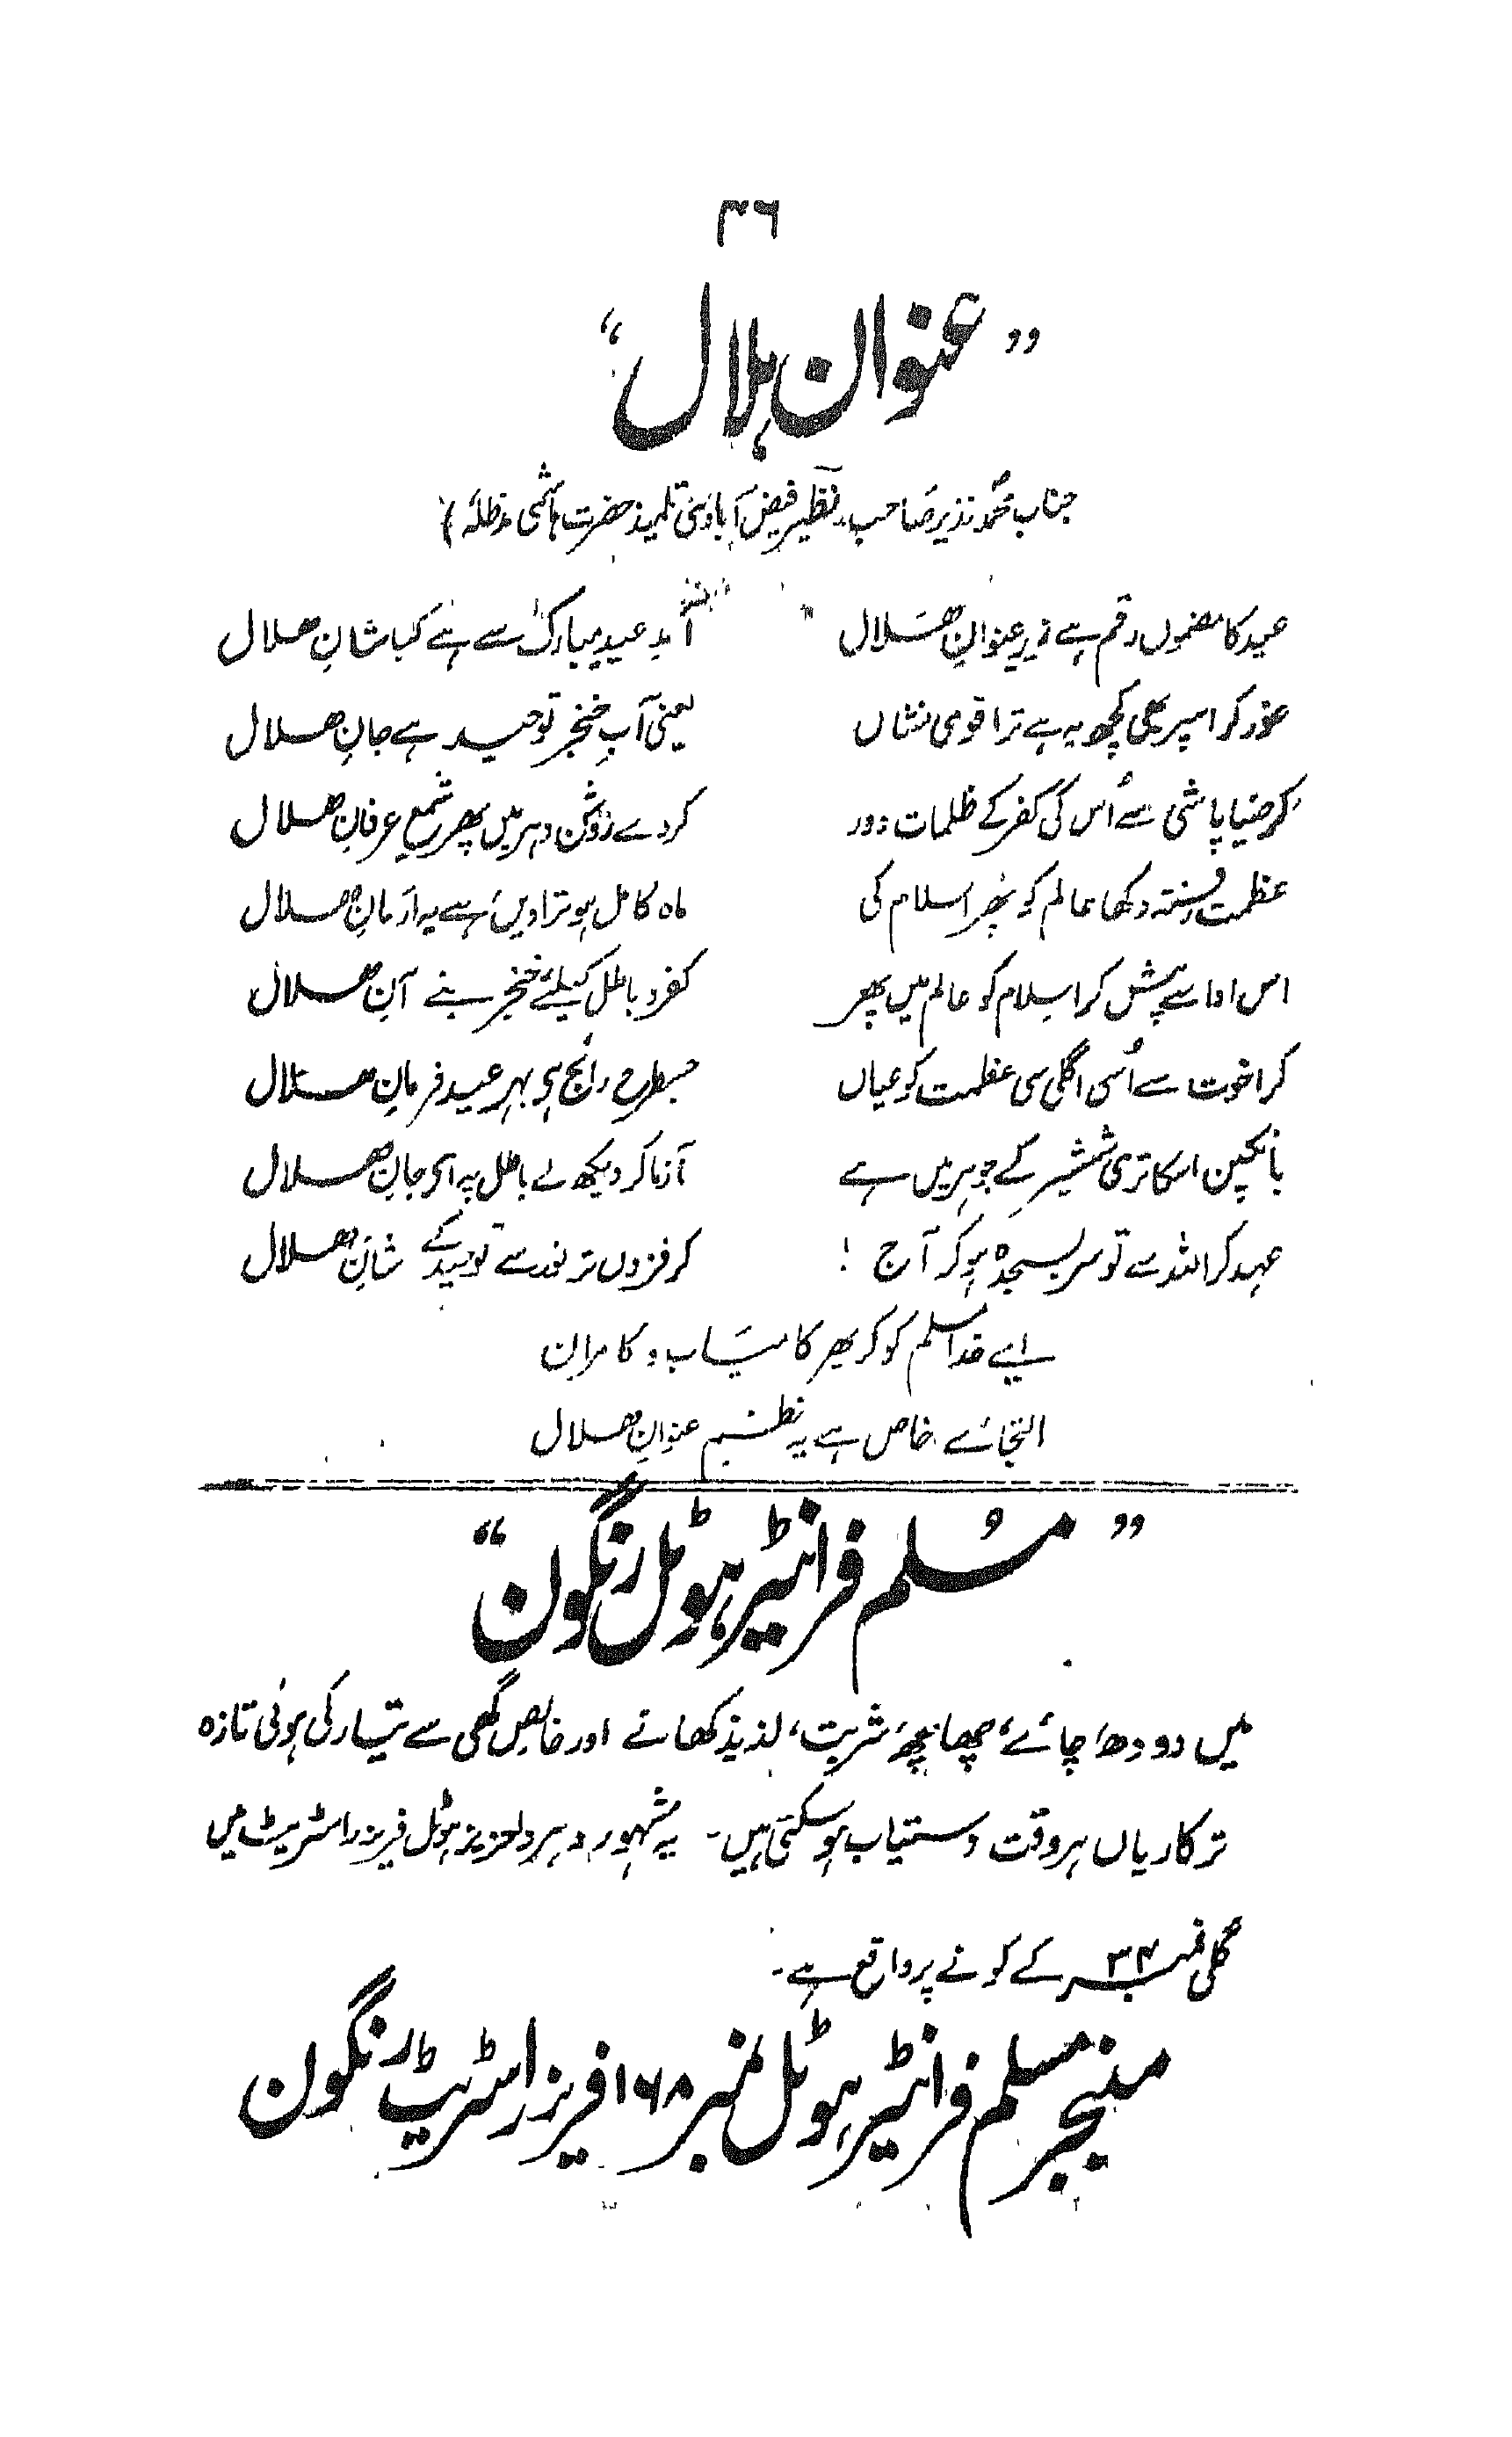 ۳۶
”عنوان ہلال“
جناب محمد نذیر صاحب نظیر فیض آبادی تلمیذ حضرت ہاشمی مدظلہٗ)
عید کا مضموں رقم ہے زیرِ عنوانِ ھلال آمدِ عیدِ مبارک سے ہے کیا شانِ ھلال
غور کر اسپر بھی کچھ یہ ہے ترا قومی نشاں یعنی آبِ خنجرِ توحید ہے جانِ ھلال
کر ضیا پاشی سے اُس کی کفر کے ظلمات دور کر دے روشن دہر میں پھر شمعِ عرفانِ ھلال
عظمتِ رفتہ دکھا عالم کو پھر اسلام کی ماہ کامل ہو ترا دیں ہے یہ ارمانِ ھلال
اس ادا سے پیش کر اسلام کو عالم میں پھر کفر و باطل کیلئے خنجر بنے آنِ ھلال
کر اخوت سے اُسی اگلی سی عظمت کو عیاں جسطرح رائج ہی بہرِ عید فرمانِ ھلال
بانکپن اسکا تری شمشیر کے جوہر میں ہے آزما کر دیکھ لے باطل پہ ای جانِ ھلال
عہد کر اللہ سے تو سر بسجدہ ہو کر آج ! کر فزوں تر نور سے توحید کے شانِ ھلال
اے خدا مسلم کو کر پھر کامیاب و کامران
التجائے خاص ہے یہ نظم عنوانِ ھلال
”مُسلم فرانٹیر ہوٹل رنگون“
میں دودھ، چائے، چھانچھ، شربت، لذیذ کھانے اور خالص گھی سے تیار کی ہوئی تازہ
ترکاریاں ہر وقت دستیاب ہو سکتی ہیں۔ یہ مشہور و ہر دلعزیز ہوٹل فریزر اسٹریٹ میں
گلی نمبر ۳۴ کے کونے پر واقع ہے۔
منیجر مسلم فرانٹیر ہوٹل نمبر ۱۶۸ فریزر اسٹریٹ رنگون